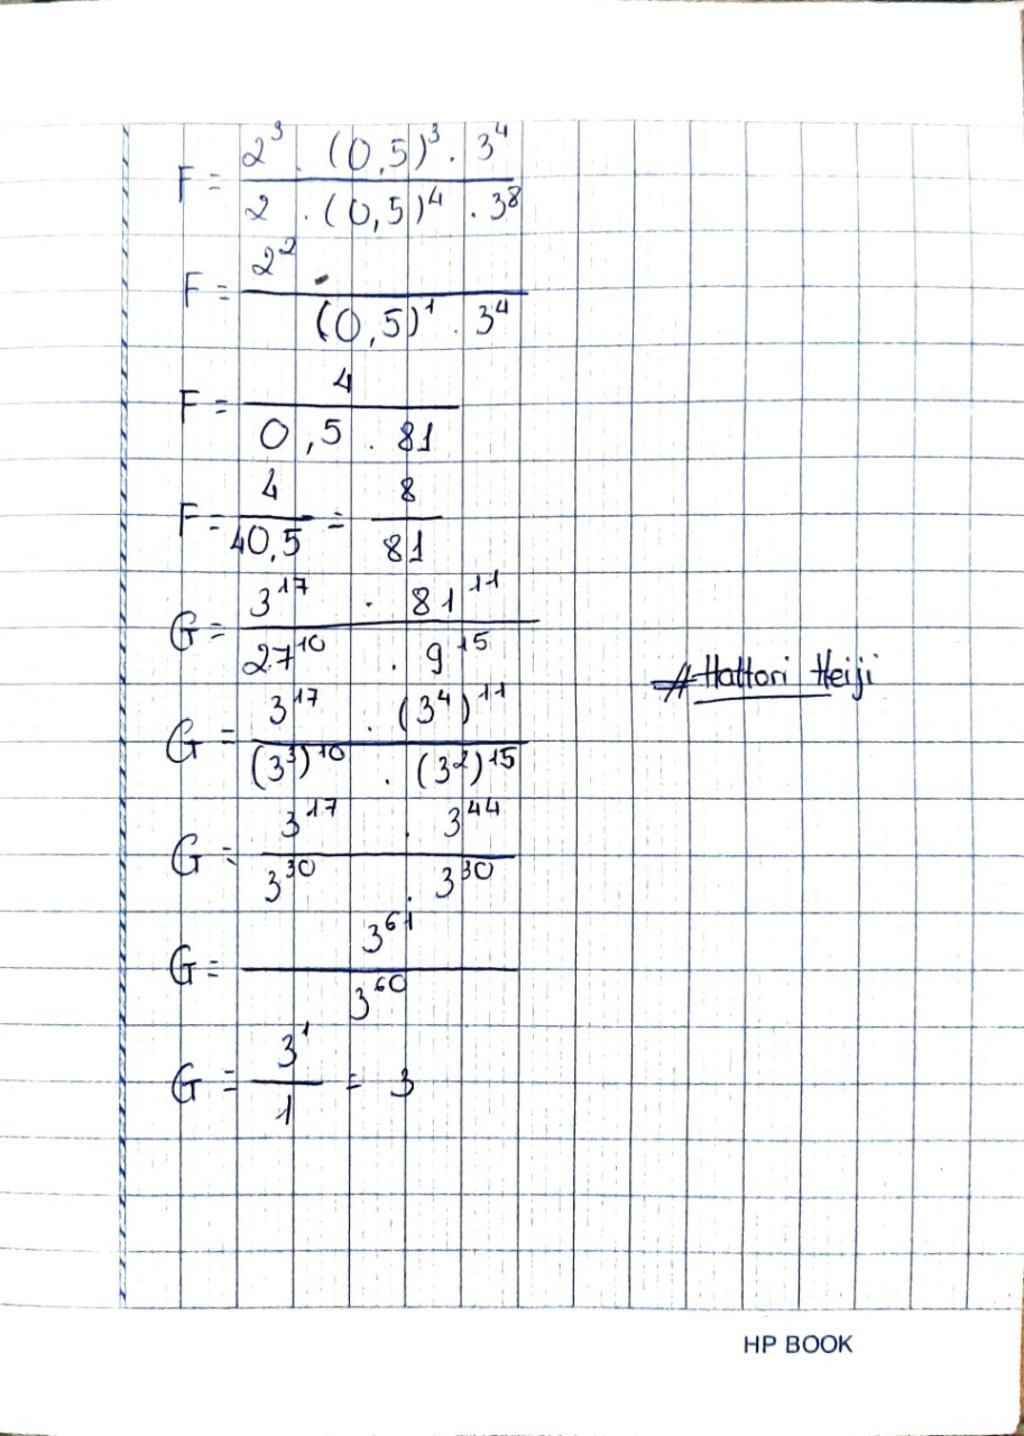 F = \frac{2^3 . (0,5)^3 . 3^4}{2 . (0,5)^4 . 3^8}
F = \frac{2^2 .}{(0,5)^1 . 3^4}
F = \frac{4}{0,5 . 81}
F = \frac{4}{40,5} = \frac{8}{81}
G = \frac{3^{17} . 81^{11}}{27^{10} . 9^{15}}
#Hattori Heiji
G = \frac{3^{17} . (3^4)^{11}}{(3^3)^{10} . (3^2)^{15}}
G = \frac{3^{17} . 3^{44}}{3^{30} . 3^{30}}
G = \frac{3^{61}}{3^{60}}
G = \frac{3^1}{1} = 3
HP BOOK